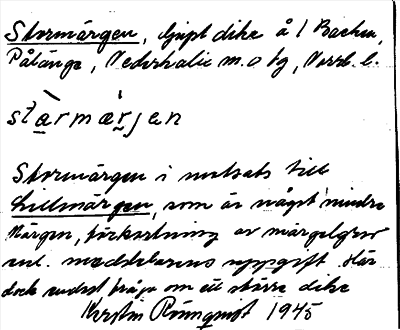 Stormärgen, djupt dike å 1 Backen,
Pålänge, Nederkalix m. o tg, Norrb. l.
starmærjen
Stormärgen i motsats till
Lillmärgen, som är något mindre
Märgen, förkortning av märgelgrav
enl. meddelarens uppgift. Här
dock endast fråga om ett större dike
Kerstin Rönnqvist 1945